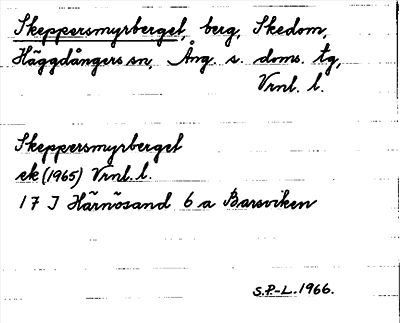 Skeppersmyrberget, berg, Skedom,
Häggdångers sn, Ång. s. doms. tg,
Vrnl. l.
Skeppersmyrberget
ek (1965) Vrnl. l.
17 I Härnösand 6 a Barsviken
S.P.-L. 1966.